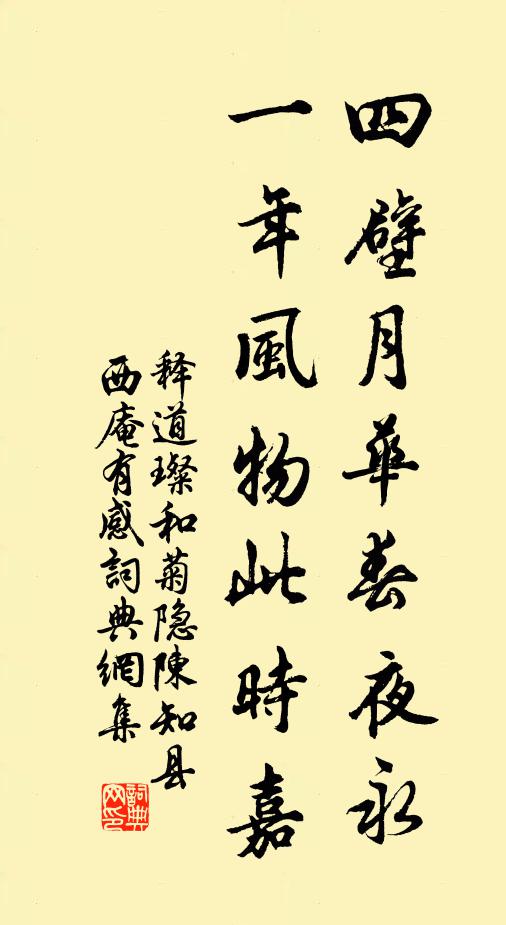 四壁月華春夜永
一年風物此時嘉
释道璨和菊隐陳知县
西庵有感詞典網集
詞典
网印